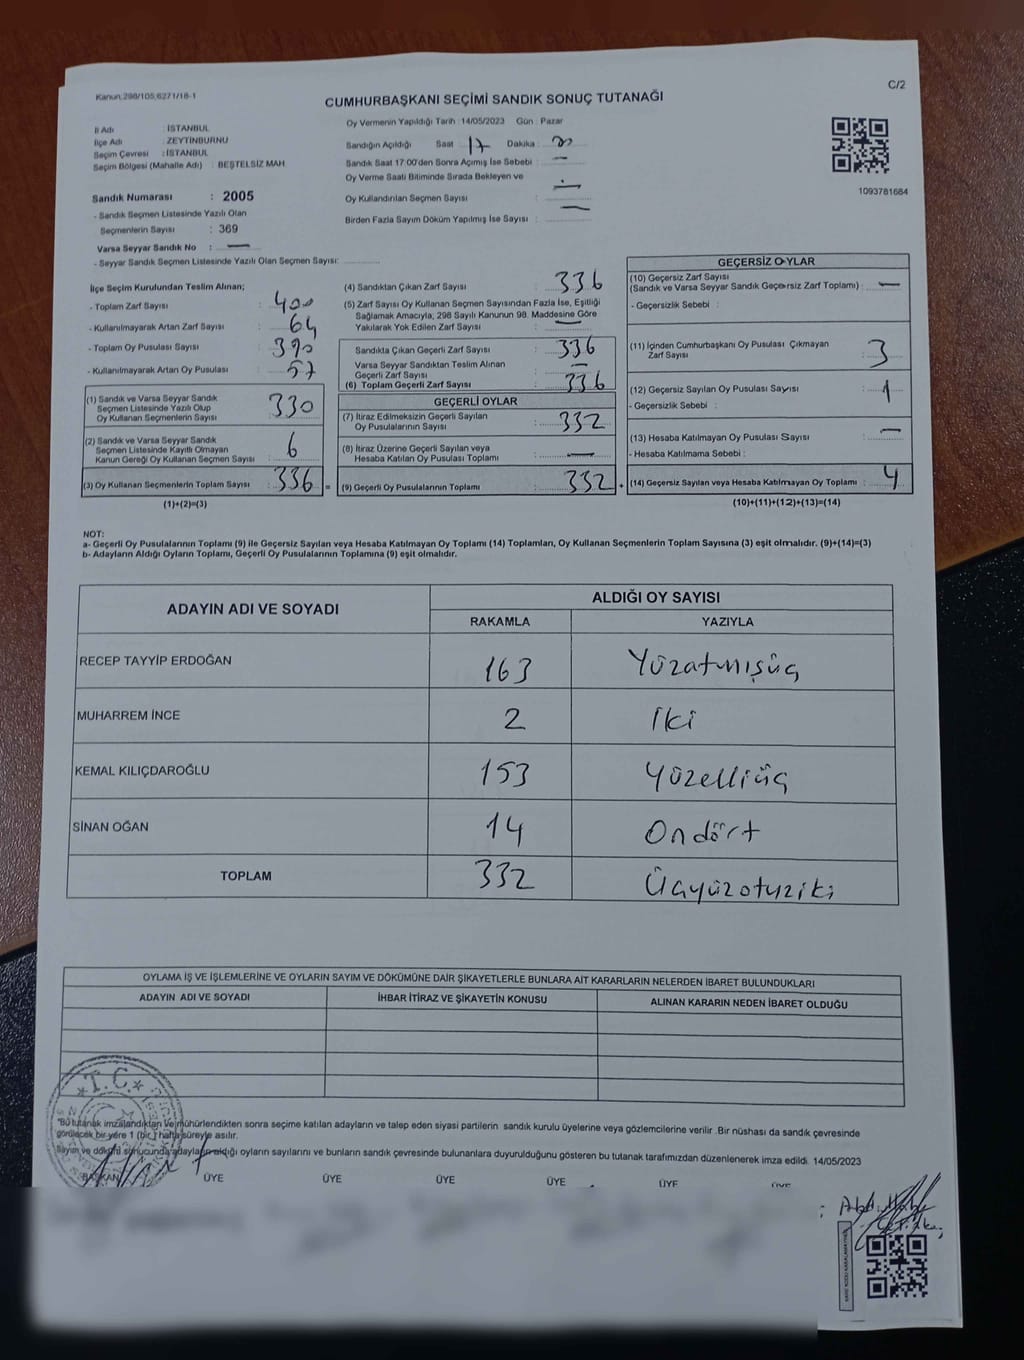 Kanun:298/105,6271/18-1
C/2
CUMHURBAŞKANI SEÇİMİ SANDIK SONUÇ TUTANAĞI
İl Adı : İSTANBUL
İlçe Adı : ZEYTİNBURNU
Seçim Çevresi : İSTANBUL
Seçim Bölgesi (Mahalle Adı) : BEŞTELSİZ MAH
Sandık Numarası : 2005
- Sandık Seçmen Listesinde Yazılı Olan
Seçmenlerin Sayısı : 369
Varsa Seyyar Sandık No : —
- Seyyar Sandık Seçmen Listesinde Yazılı Olan Seçmen Sayısı:
Oy Vermenin Yapıldığı Tarih :14/05/2023 Gün : Pazar
Sandığın Açıldığı Saat 17 Dakika :
Sandık Saat 17:00'den Sonra Açımış İse Sebebi : —
Oy Verme Saati Bitiminde Sırada Bekleyen ve
Oy Kullandırılan Seçmen Sayısı : —
Birden Fazla Sayım Döküm Yapılmış İse Sayısı : —
1093781684
İlçe Seçim Kurulundan Teslim Alınan;
- Toplam Zarf Sayısı : 400
- Kullanılmayarak Artan Zarf Sayısı : 64
- Toplam Oy Pusulası Sayısı : 390
- Kullanılmayarak Artan Oy Pusulası : 57
(1) Sandık ve Varsa Seyyar Sandık
Seçmen Listesinde Yazılı Olup
Oy Kullanan Seçmenlerin Sayısı : 330
(2) Sandık ve Varsa Seyyar Sandık
Seçmen Listesinde Kayıtlı Olmayan
Kanun Gereği Oy Kullanan Seçmen Sayısı : 6
(3) Oy Kullanan Seçmenlerin Toplam Sayısı : 336 =
(1)+(2)=(3)
(4) Sandıktan Çıkan Zarf Sayısı : 336
(5) Zarf Sayısı Oy Kullanan Seçmen Sayısından Fazla İse, Eşitliği
Sağlamak Amacıyla, 298 Sayılı Kanunun 98. Maddesine Göre
Yakılarak Yok Edilen Zarf Sayısı : —
Sandıkta Çıkan Geçerli Zarf Sayısı : 336
Varsa Seyyar Sandıktan Teslim Alınan
Geçerli Zarf Sayısı : —
(6) Toplam Geçerli Zarf Sayısı : 336
GEÇERLİ OYLAR
(7) İtiraz Edilmeksizin Geçerli Sayılan
Oy Pusulalarının Sayısı : 332
(8) İtiraz Üzerine Geçerli Sayılan veya
Hesaba Katılan Oy Pusulası Toplamı : —
(9) Geçerli Oy Pusulalarının Toplamı : 332 +
GEÇERSİZ OYLAR
(10) Geçersiz Zarf Sayısı
(Sandık ve Varsa Seyyar Sandık Geçersiz Zarf Toplamı) : —
- Geçersizlik Sebebi :
(11) İçinden Cumhurbaşkanı Oy Pusulası Çıkmayan
Zarf Sayısı : 3
(12) Geçersiz Sayılan Oy Pusulası Sayısı : 1
- Geçersizlik Sebebi :
(13) Hesaba Katılmayan Oy Pusulası Sayısı : —
- Hesaba Katılmama Sebebi :
(14) Geçersiz Sayılan veya Hesaba Katılmayan Oy Toplamı : 4
(10)+(11)+(12)+(13)=(14)
NOT:
a- Geçerli Oy Pusulalarının Toplamı (9) ile Geçersiz Sayılan veya Hesaba Katılmayan Oy Toplamı (14) Toplamları, Oy Kullanan Seçmenlerin Toplam Sayısına (3) eşit olmalıdır. (9)+(14)=(3)
b- Adayların Aldığı Oyların Toplamı, Geçerli Oy Pusulalarının Toplamına (9) eşit olmalıdır.
ADAYIN ADI VE SOYADI ALDIĞI OY SAYISI
RAKAMLA YAZIYLA
RECEP TAYYİP ERDOĞAN 163 Yüzatmışüç
MUHARREM İNCE 2 İki
KEMAL KILIÇDAROĞLU 153 Yüzelliüç
SİNAN OĞAN 14 Ondört
TOPLAM 332 Üçyüzotuziki
OYLAMA İŞ VE İŞLEMLERİNE VE OYLARIN SAYIM VE DÖKÜMÜNE DAİR ŞİKAYETLERLE BUNLARA AİT KARARLARIN NELERDEN İBARET BULUNDUKLARI
ADAYIN ADI VE SOYADI İHBAR İTİRAZ VE ŞİKAYETİN KONUSU ALINAN KARARIN NEDEN İBARET OLDUĞU
T.C.
*Bu tutanak imzalandıktan ve mühürlendikten sonra seçime katılan adayların ve talep eden siyasi partilerin sandık kurulu üyelerine veya gözlemcilerine verilir .Bir nüshası da sandık çevresinde
görülecek bir yere 1 (bir ) hafta süreyle asılır.
Sayım ve dökümü sonucunda adayların aldığı oyların sayılarını ve bunların sandık çevresinde bulunanlara duyurulduğunu gösteren bu tutanak tarafımızdan düzenlenerek imza edildi. 14/05/2023
BAŞKAN ÜYE ÜYE ÜYE ÜYE ÜYE ÜYE